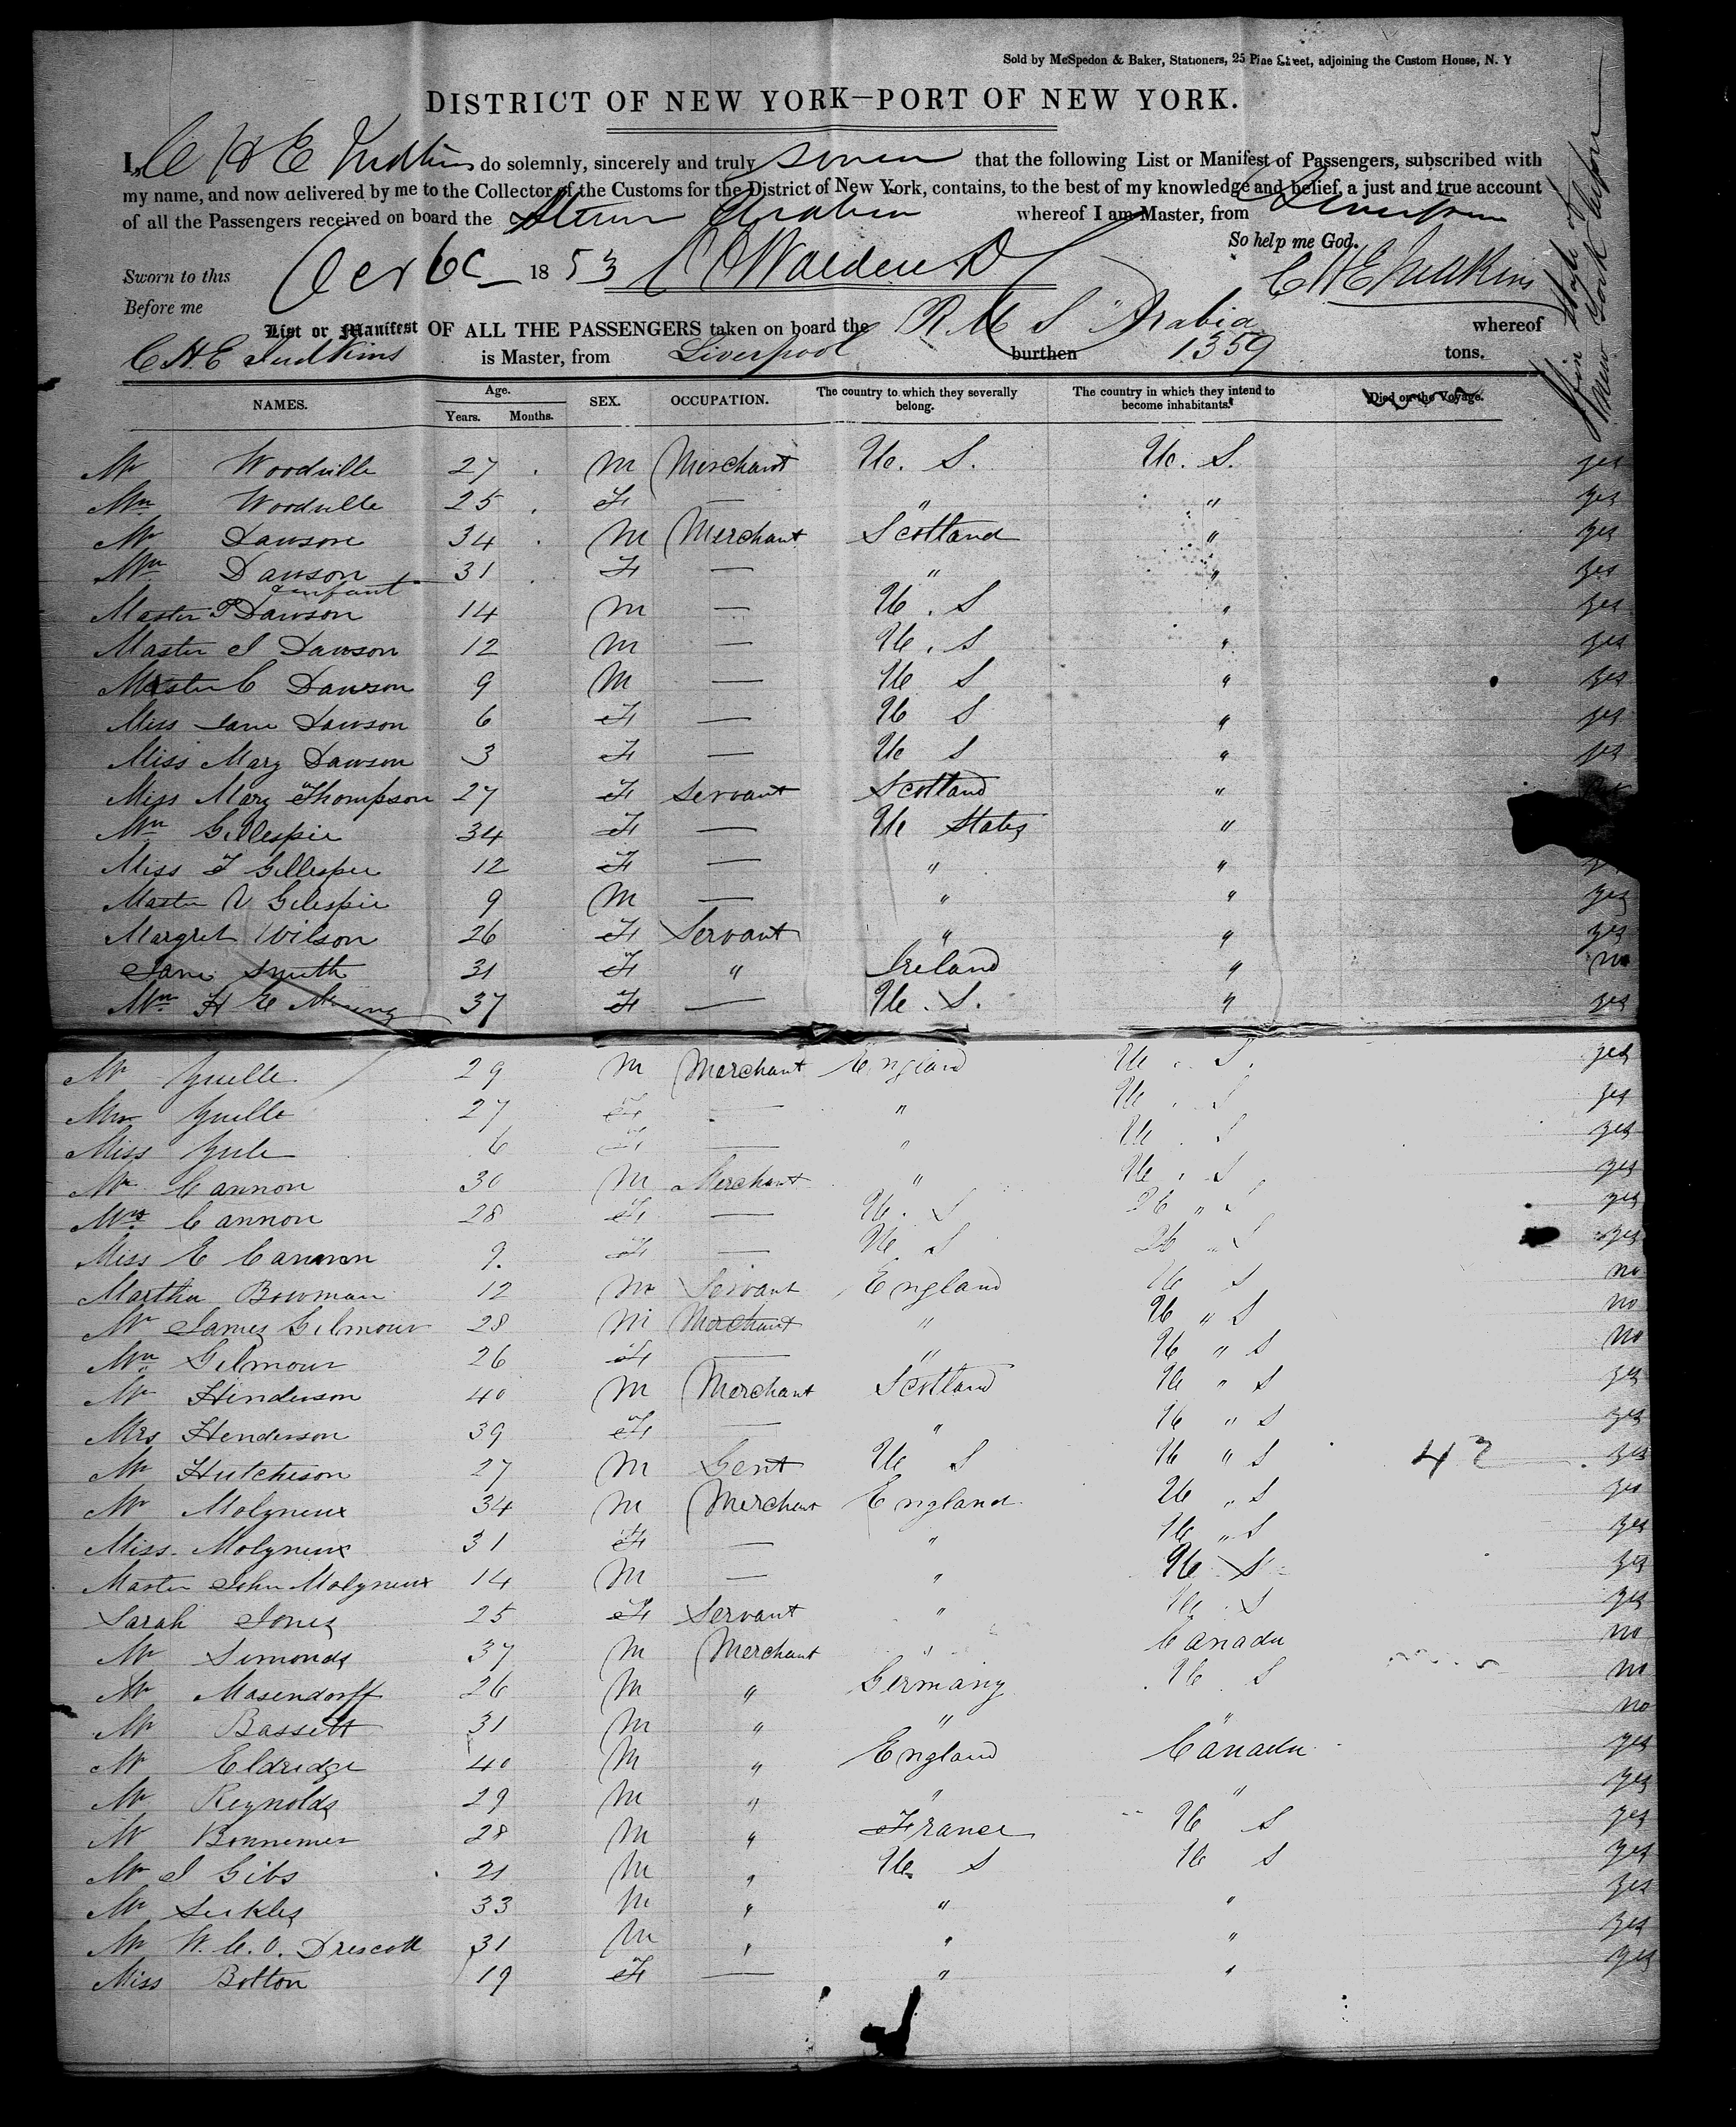 Sold by McSpedon & Baker, Stationers, 25 Pine Street, adjoining the Custom House, N. Y
DISTRICT OF NEW YORK—PORT OF NEW YORK.
I, C H E Judkins do solemnly, sincerely and truly swear that the following List or Manifest of Passengers, subscribed with
my name, and now delivered by me to the Collector of the Customs for the District of New York, contains, to the best of my knowledge and belief, a just and true account
of all the Passengers received on board the Steamer Arabia whereof I am Master, from Liverpool
So help me God.
Sworn to this 1853 C H E Judkins
Before me
List or Manifest OF ALL THE PASSENGERS taken on board the R M S Arabia whereof
C H E Judkins is Master, from Liverpool burthen 1359 tons.
NAMES. Age. Years. Months. SEX. OCCUPATION. The country to which they severally belong. The country in which they intend to become inhabitants. Died on the Voyage.
Mr Woodville 27 M Merchant U. S. U. S. yes
Mrs Woodville 25 F — " " yes
Mr Dawson 34 M Merchant Scotland " yes
Mrs Dawson 31 F — " " yes
& infant
Master P Dawson 14 M — U. S " yes
Master J Dawson 12 M — U. S " yes
Master C Dawson 9 M — U S " yes
Miss Jane Dawson 6 F — U S " yes
Miss Mary Dawson 3 F — U S " yes
Miss Mary Thompson 27 F Servant Scotland "
Mrs Gillespie 34 F — U States "
Miss F Gillespie 12 F — " "
Master V Gilespie 9 M — " " yes
Margret Wilson 26 F Servant " " yes
Jane Smith 31 F " Ireland " no
Mrs H E 37 F — U. S. " yes
Mr Yuelle 29 M Merchant England U. S. yes
Mrs Yuelle 27 F — " U. S yes
Miss Yule 6 F — " U. S yes
Mr Cannon 30 M Merchant " U. S yes
Mrs Cannon 28 F — U. S U " S yes
Miss E Cannon 9. F — U. S U " S yes
Martha Bowman 12 M Servant England U S no
Mr James Gilmour 28 M Merchant " U " S no
Mrs Gilmour 26 F — " U " S no
Mr Henderson 40 M Merchant Scotland U " S yes
Mrs Henderson 39 F — " U " S yes
Mr Hutcheson 27 M Gent U S U " S 42 yes
Mr Molyneux 34 M Merchant England U " S yes
Miss. Molyneux 31 F — " U " S yes
Master John Molyneux 14 M — " U S yes
Sarah Jones 25 F Servant " U. S yes
Mr Simonds 37 M Merchant " Canada no
Mr Masendorff 26 M " Germany U S no
Mr Bassett 31 M " " " no
Mr Eldridge 40 M " England Canada yes
Mr Reynolds 29 M " " " yes
Mr Bonnemer 28 M " France U S yes
Mr J Gibs 21 M " U. S U S yes
Mr Seckles 33 M " " " yes
Mr W. C. O. Drescoll 31 M " " " yes
Miss Bolton 19 F — " " yes